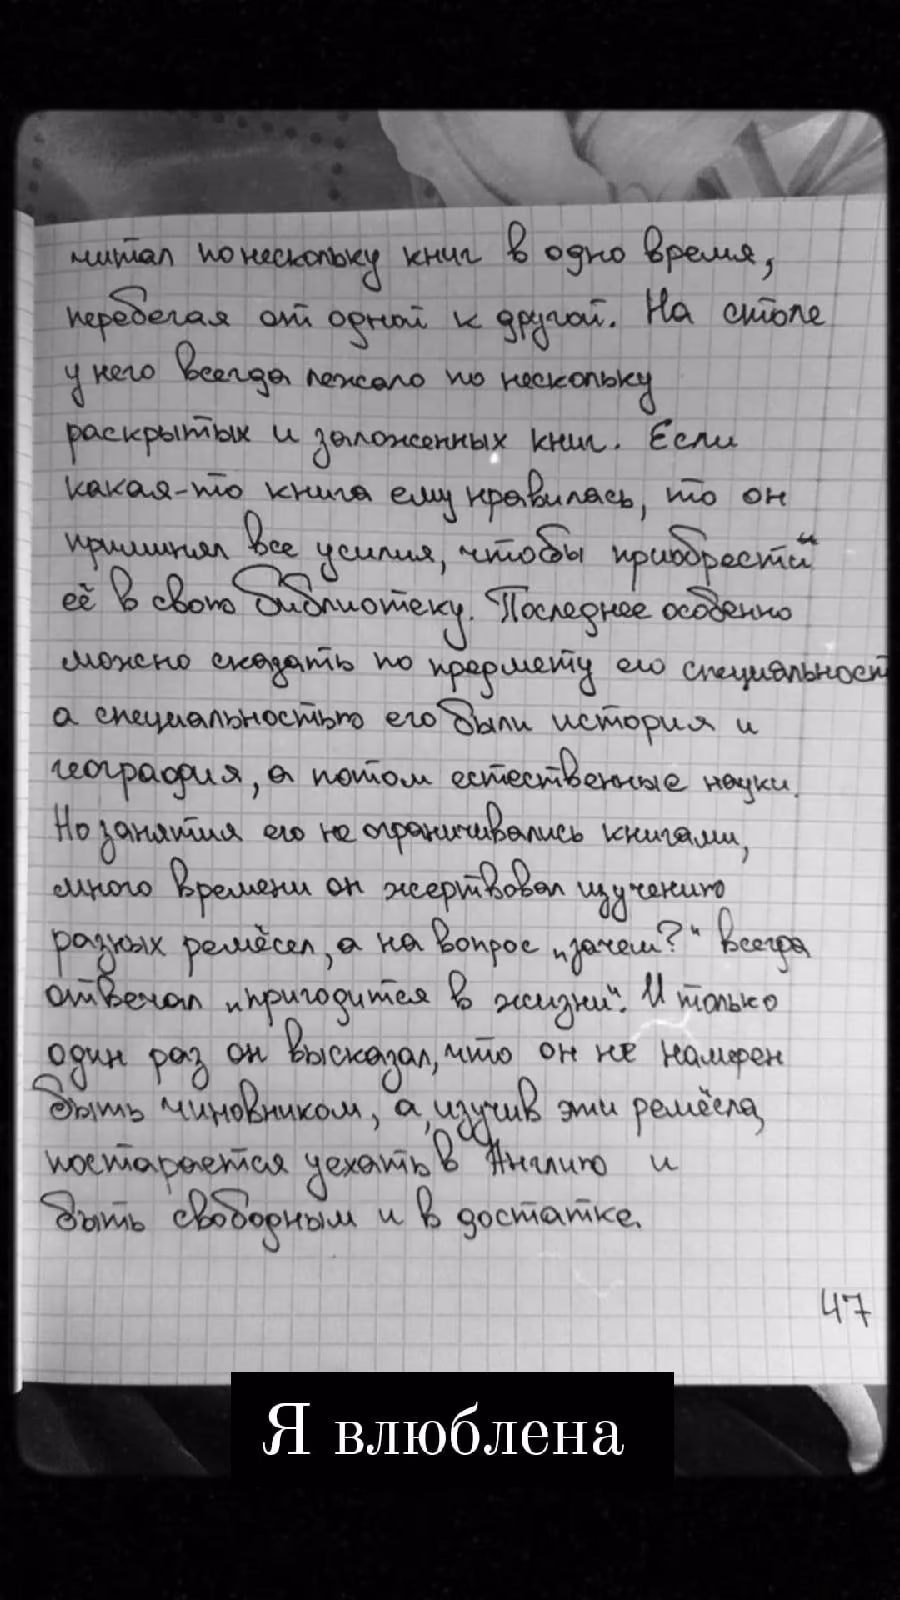 читал по нескольку книг в одно время,
перебегая от одной к другой. На столе
у него всегда лежало по нескольку
раскрытых и заложенных книг. Если
какая-то книга ему нравилась, то он
принимал все усилия, чтобы приобрести
её в свою библиотеку. Последнее особенно
можно сказать по предмету его специальност
а специальностью его были история и
география, а потом естественные науки.
Но занятия его не ограничивались книгами,
много времени он жертвовал изучению
разных ремёсел, а на вопрос „зачем?“ всегда
отвечал „пригодится в жизни“. И только
один раз он высказал, что он не намерен
быть чиновником, а, изучив эти ремёсла,
постарается уехать в Англию и
быть свободным и в достатке.
47
Я влюблена